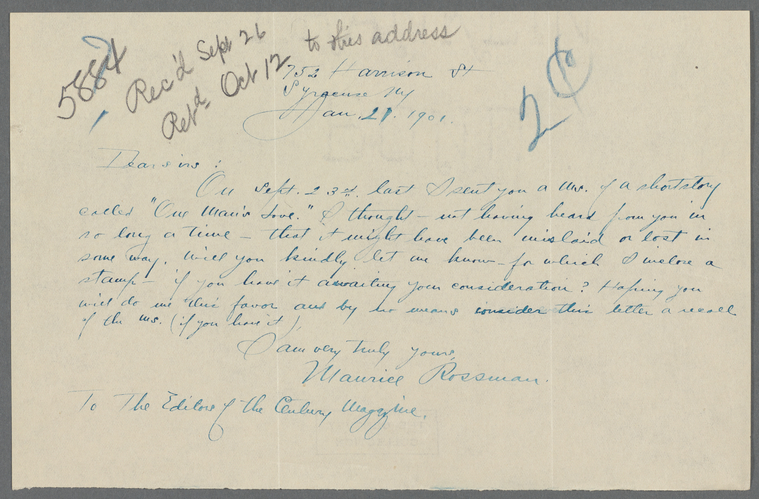 5884
Rec'd Sept 26
Ret'd Oct 12 to this address
2¢
752 Harrison St
Syracuse NY
Jan. 21. 1901.
Dear sirs:
On Sept. 23rd. last I sent you a Ms. of a short story
called "One Man's Love." I thought - not having heard from you in
so long a time - that it might have been mislaid or lost in
some way. Will you kindly let me know - for which I inclose a
stamp - if you have it awaiting your consideration? Hoping you
will do me this favor and by no means consider this letter a recall
of the ms. (if you have it)
I am very truly yours,
Maurice Rossman.
To The Editors of the Century Magazine.